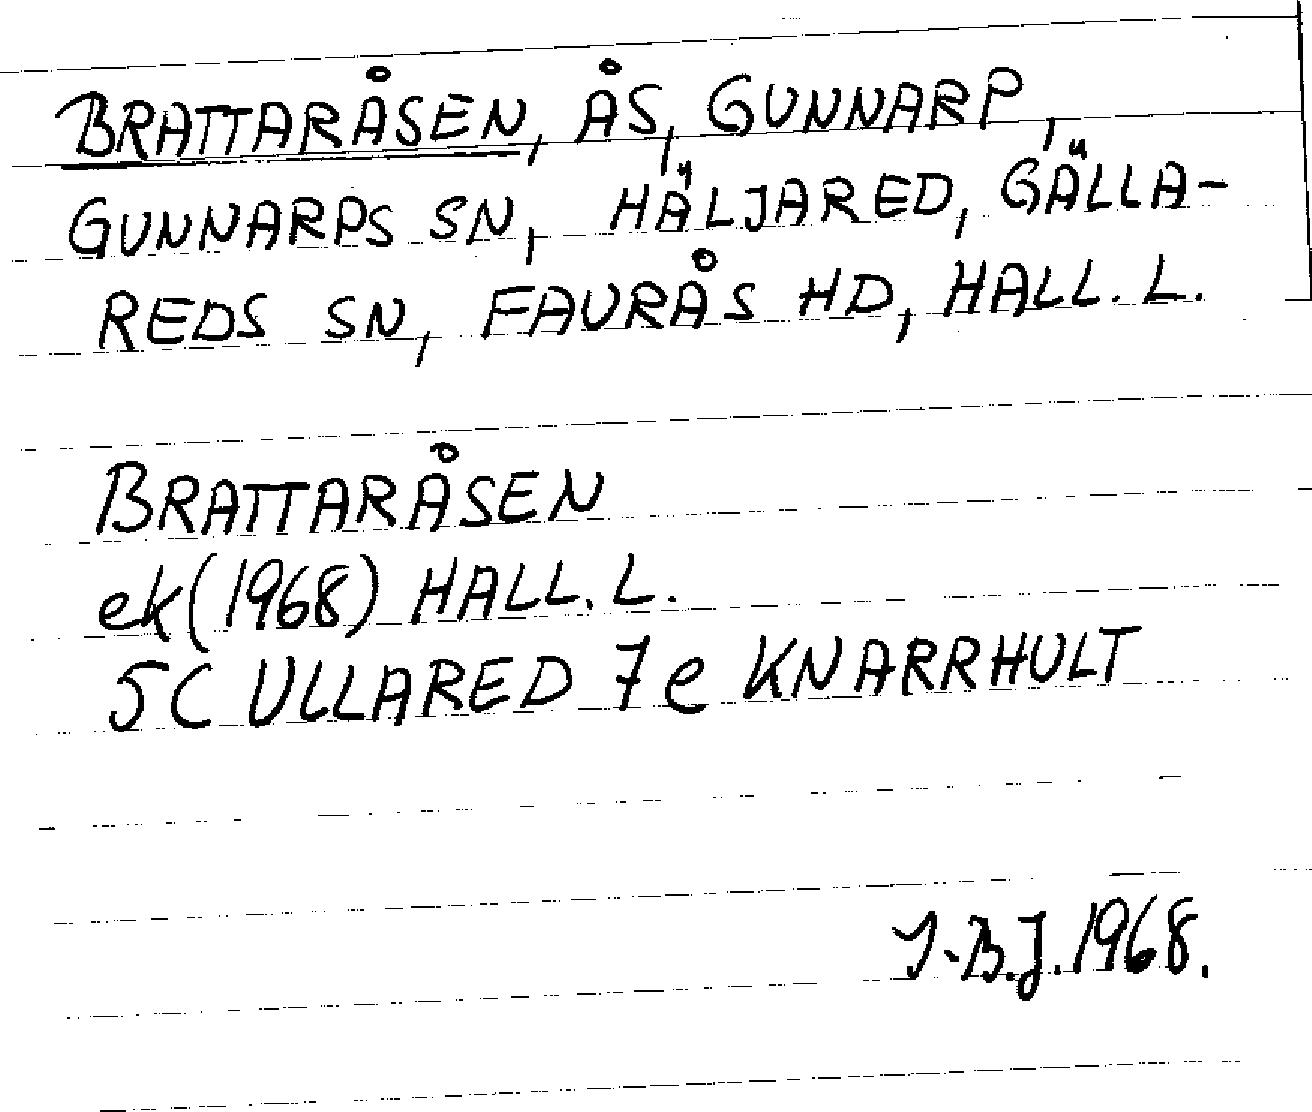 BRATTARÅSEN, ÅS, GUNNARP,
GUNNARPS SN, HÄLJARED, GÄLLA-
REDS SN, FAURÅS HD, HALL. L.
BRATTARÅSEN
ek (1968) HALL. L.
5C ULLARED 7e KNARRHULT
I-B.J. 1968.